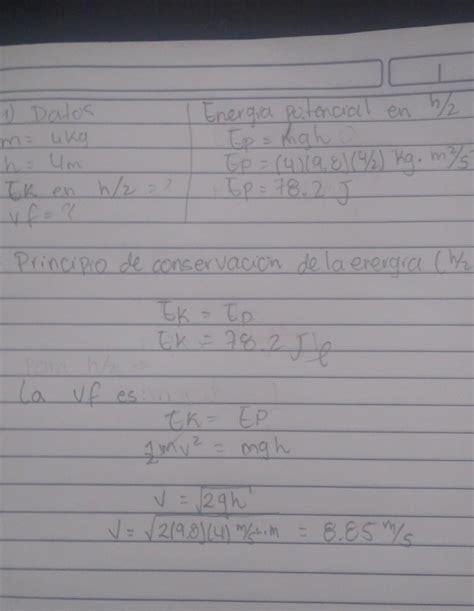 1
1) Datos
m= 4kg
h= 4m
Ek en h/2 = ?
vf= ?
Energia potencial en h/2
Ep = mgh
Ep = (4)(9,8)(4/2) kg·m²/s
Ep = 78.2 J
Principio de conservación de la energía (h/2
Ek = Ep
Ek = 78.2 J
La vf es:
Ek = EP
1/2 mv² = mgh
V = √2gh
V = √2(9,8)(4) m/s²·m = 8.85 m/s